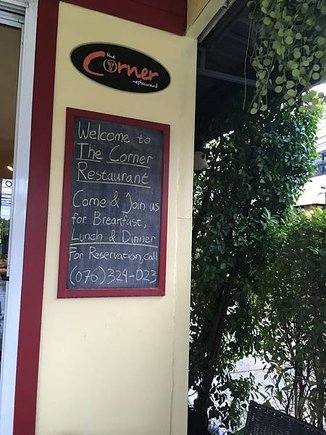 the
Corner
restaurant
Welcome to
The Corner
Restaurant
Come & Join us
for Breakfast,
Lunch & Dinner
For Reservation, call
(076) 324-023